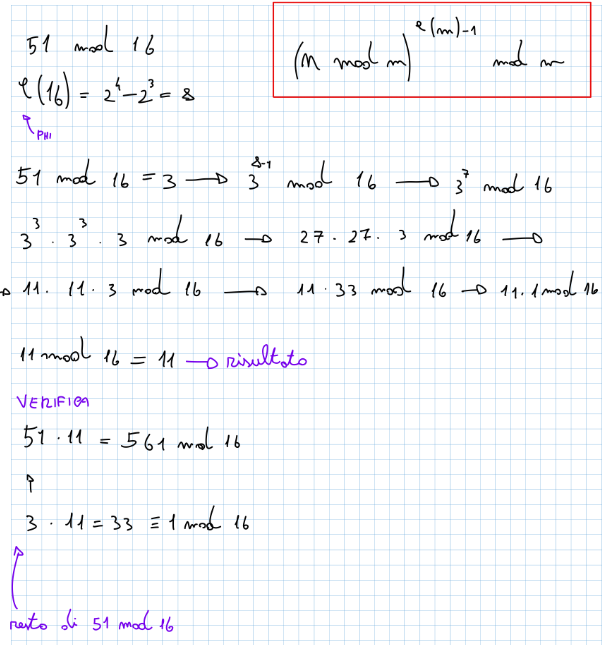 51 mod 16
(n mod m)^φ(m)-1 mod m
φ(16) = 2^4 - 2^3 = 8
PHI
51 mod 16 = 3 → 3^8-1 mod 16 → 3^7 mod 16
3^3 · 3^3 · 3 mod 16 → 27 · 27 · 3 mod 16 →
→ 11 · 11 · 3 mod 16 → 11 · 33 mod 16 → 11 · 1 mod 16
11 mod 16 = 11 → risultato
VERIFICA
51 · 11 = 561 mod 16
3 · 11 = 33 ≡ 1 mod 16
resto di 51 mod 16